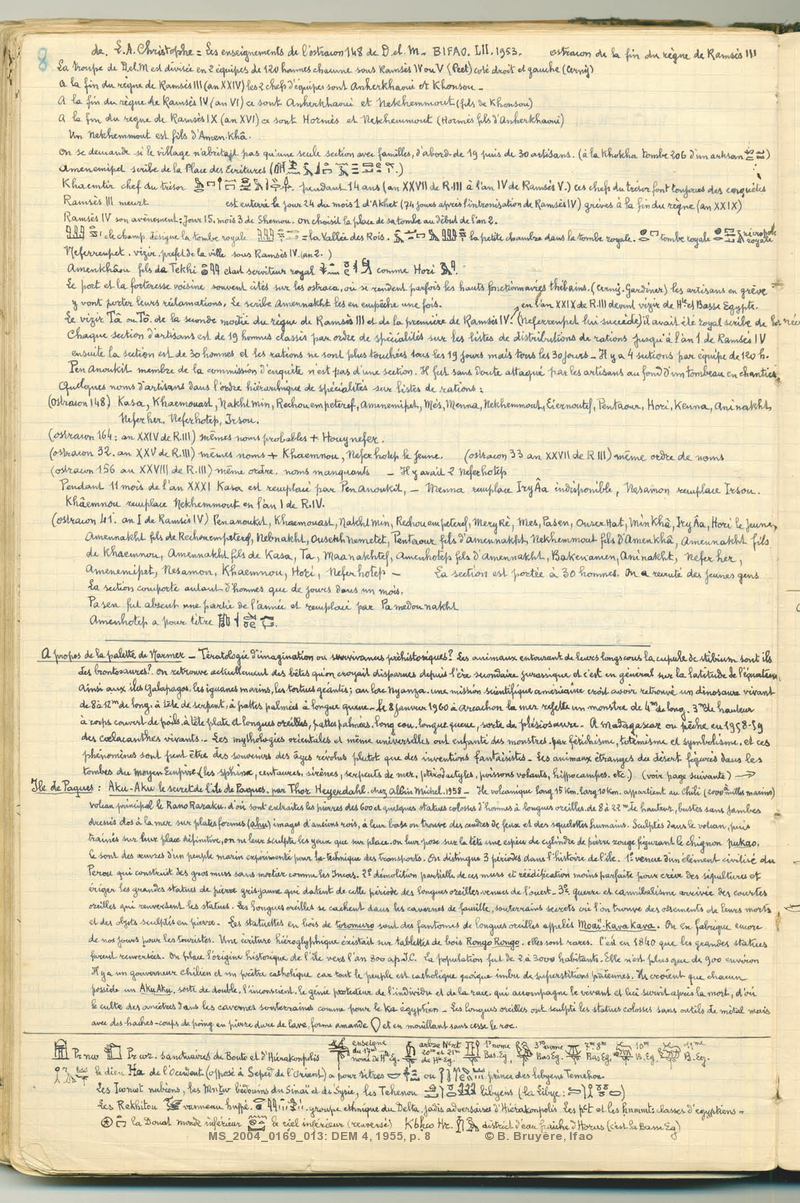 8
de L.A. Christophe = Les enseignements de l'ostracon 148 de D el M. BIFAO. LII. 1953. ostracon de la fin du règne de Ramsès III
La troupe de D.el.M est divisée en 2 équipes de 120 hommes chacune sous Ramsès IV ou V (Peet) coté droit et gauche (Cerny)
A la fin du règne de Ramsès III (an XXIV) les 2 chefs d'équipes sont Anherkhaoui et Khonsou -
A la fin du règne de Ramsès IV (an VI) ce sont Anherkhaoui et Nekhemmout (fils de Khonsou)
A la fin du règne de Ramsès IX (an XVI) ce sont Hormès et Nekhemmout (Hormès fils d'Anherkhaoui)
Un Nekhemmout est fils d'Amen.Khâ.
On se demande si le village n'abritait pas qu'une seule section avec familles, d'abord de 19 puis de 30 artisans. (à la Khokha tombe 206 d'un artisan
Amenemipet scribe de la Place des Ecritures
Khaemtir chef du trésor pendant 14 ans (an XXVII de R.III à l'an IV de Ramsès V.) ces chefs du trésor font toujours des enquêtes
Ramsès III meurt est enterré le jour 24 du mois 1 d'Akhet (74 jours après l'intronisation de Ramsès IV) grèves à la fin du règne (an XXIX)
Ramsès IV son avènement: jour 15. mois 3 de Shemou. On choisit la place de sa tombe au début de l'an 2.
: le champ désigne la tombe royale. = la Vallée des Rois. la petite chambre dans la tombe royale. tombe royale nécropole royale
Neferrenpet. vizir. préfet de la ville sous Ramsès IV. (an 2.)
Amenkhâou fils de Tekhi était serviteur royal comme Hori
Le port et la forteresse voisine souvent cités sur les ostraca, où se rendent parfois les hauts fonctionnaires thébains. (Cerny. Gardiner) les artisans en grève
y vont porter leurs réclamations. Le scribe Amennakht les en empêche une fois. en l'an XXIX de R.III devint vizir de Hte et Basse Egypte.
Le vizir Tâ ou Tô. de la seconde moitié du règne de Ramsès III et de la première de Ramsès IV. (Neferrenpet lui succède) il avait été royal scribe de
Chaque section d'artisans est de 19 hommes classés par ordre de spécialités sur les listes de distributions de rations jusqu'à l'an 1 de Ramsès IV
ensuite la section est de 30 hommes et les rations ne sont plus touchées tous les 19 jours mais tous les 30 jours - Il y a 4 sections par équipe de 120 h.
Pen Anoukit membre de la commission d'enquête n'est pas d'une section. Il fut sans doute attaqué par les artisans au fond d'un tombeau en chantier.
Quelques noms d'artisans dans l'ordre hiérarchique de spécialités sur listes de rations:
(Ostracon 148) Kasa, Khaemouast, Nakhtmin, Rechoupeteref, Amenemipet, Mès, Menna, Nekhemmout, Eiernoutef, Pentaour, Hori, Kenna, Aninakht,
Neferher, Neferhotep, Irsou.
(ostracon 164: an XXIV de R.III) mêmes noms probables + Houynefer.
(ostracon 32. an XXV de R.III) mêmes noms + Khaemnou, Neferhotep le Jeune. (ostracon 33 an XXVII de R III) même ordre de noms
(ostracon 156 au XXVIII de R.III) même ordre. noms manquants - Il y avait 2 Neferhotep
Pendant 11 mois de l'an XXXI Kasa est remplacé par PenAnoukit, - Menna remplace IryÂa indisponible, Nesamon remplace Irsou.
Khâemnou remplace Nekhemmout en l'an I de R.IV.
(ostracon 41. an I de Ramsès IV) Penanoukit, Khaemouast, Nakhtmin, Rechoupeteref, MeryRê, Mes, Pasen, OuserHat, MinKhâ, IryÂa, Hori le Jeune,
Amennakht fils de Rechoupeteref, Nebnakht, Ouserkhnemetet, Pentaour fils d'Amennakht, Nekhemmout fils d'Amenkhâ, Amennakht fils
de Khaemnou, Amennakht fils de Kasa, Ta, Maanakhtef, Amenhotep fils d'Amennakht, Bakenamen, Aninakht, Neferher,
Amenemipet, Nesamon, Khaemnou, Hori, Neferhotep - La section est portée à 30 hommes. On a recruté des jeunes gens
La section comporte autant d'hommes que de jours dans un mois.
Pasen fut absent une partie de l'année et remplacé par Pamedounakht
Amenhotep a pour titre
A propos de la palette de Narmer - Tératologie d'imagination ou survivances préhistoriques? Les animaux entourant de leurs longs cous la cupule de stibium sont ils
des brontosaures? on retrouve actuellement des bêtes qu'on croyait disparues depuis l'ère secondaire jurassique et c'est en général sur la latitude de l'équateur.
Ainsi aux iles Galapagos, les iguanes marins, les tortues géantes; au lac Nyanza. une mission scientifique américaine croit avoir retrouvé un dinosaure vivant
de 8 à 12 m de long. à tête de serpent, à pattes palmées à longue queue. Le 8 janvier 1960 à Arcachon la mer rejette un monstre de 4 m de long. 3 m de hauteur
à corps couvert de poils à tête plate et longues oreilles, pattes palmées. long cou. longue queue, sorte de plésiosaure. A Madagascar on pêche en 1958-59
des cœlacanthes vivants. - Les mythologies orientales et même universelles ont enfanté des monstres. par fétichisme, totémisme et symbolisme, et ces
phénomènes sont peut être des souvenirs des âges révolus plutot que des inventions fantaisistes. - Les animaux étranges du désert figurés dans les
tombes du Moyen Empire (les sphinx, centaures, sirènes, serpents de mer, ptérodactyles, poissons volants, hippocampes. etc.) (voir page suivante) →
Ile de Paques: Aku-Aku le secret de l'île de Paques, par Thor Heyerdahl. chez Albin Michel. 1958 - Ile volcanique long 15 Km. larg 10 Km. appartient au Chili (2000 milles marins)
volcan principal le Rano Raraku. d'où sont extraites les pierres des 600 et quelques statues colosses d'hommes à longues oreilles. de 8 à 22 m de hauteur, bustes sans jambes
dressés dos à la mer sur plates formes (ahu) images d'anciens rois, à leur base on trouve des cendres de feux et des squelettes humains. Sculptés dans le volcan, puis
trainés sur leur place définitive, on ne leur sculpte les yeux que sur place. on leur pose sur la tête une espèce de cylindre de pierre rouge figurant le chignon pukao.
Ce sont des œuvres d'un peuple marin expérimenté pour la technique des transports. On distingue 3 périodes dans l'histoire de l'île. 1º venue d'un élément civilisé du
Pérou qui construit des gros murs sans mortier comme les Incas. 2º démolition partielle de ces murs et réédification moins parfaite pour créer des sépultures et
ériger les grandes statues de pierre gris jaune qui datent de cette période des longues oreilles venues de l'ouest - 3º guerre et cannibalisme arrivée des courtes
oreilles qui renversent les statues. Les longues oreilles se cachent dans les cavernes de famille, souterrains secrets où l'on trouve des ossements de leurs morts
et des objets sculptés en pierre. Les statuettes en bois de toromiro sont des fantomes de longues oreilles appelés Moaï-Kava Kava. On en fabrique encore
de nos jours pour les touristes. Une écriture hiéroglyphique existait sur tablettes de bois Rongo Rongo. elles sont rares. C'est en 1840 que les grandes statues
furent renversées. On place l'origine historique de l'île vers l'an 300 ap. J.C. La population fut de 2 à 3000 habitants. Elle n'est plus que de 900 environ
Il y a un gouverneur chilien et un prêtre catholique car tout le peuple est catholique quoique imbu de superstitions païennes. Ils croient que chacun
possède un Aku Aku, sorte de double, l'inconscient. le génie protecteur de l'individu et de la race. qui accompagne le vivant et lui survit après la mort, d'où
le culte des ancêtres dans les cavernes souterraines comme pour le Ka égyptien - Les longues oreilles ont sculpté les statues colosses sans outils de métal mais
avec des haches-coups de poing en pierre dure de lave, forme amande et en mouillant sans cesse le roc.
Pr nw Pr wr. sanctuaires de Bouto et d'Hiérakonpolis enseigne du 17me nome de Hte Eg. arbre Naret 20me et 21me de Hte Eg. 1er nome Bas. Eg. 3me nome Bas Eg. 7me 8me Bas Eg. 10me B. Eg. 11me B. Eg.
le dieu Ha de l'Occident (opposé à Seped de l'Orient) a pour titres ou prince des libyens Temehou.
Les Iwnut nubiens, les Mntw bédouins du Sinaï et de Syrie, les Tehenou libyens (la Libye:
Les Rekhitou vanneau huppé. groupe ethnique du Delta, jadis adversaires d'Hiérakonpolis. Les classes d'égyptiens -
la Douat monde inférieur le ciel inférieur (renversé) district d'eau fraîche d'Horus (c'est la Basse Eg)
MS_2004_0169_013: DEM 4, 1955, p. 8 © B. Bruyère, Ifao